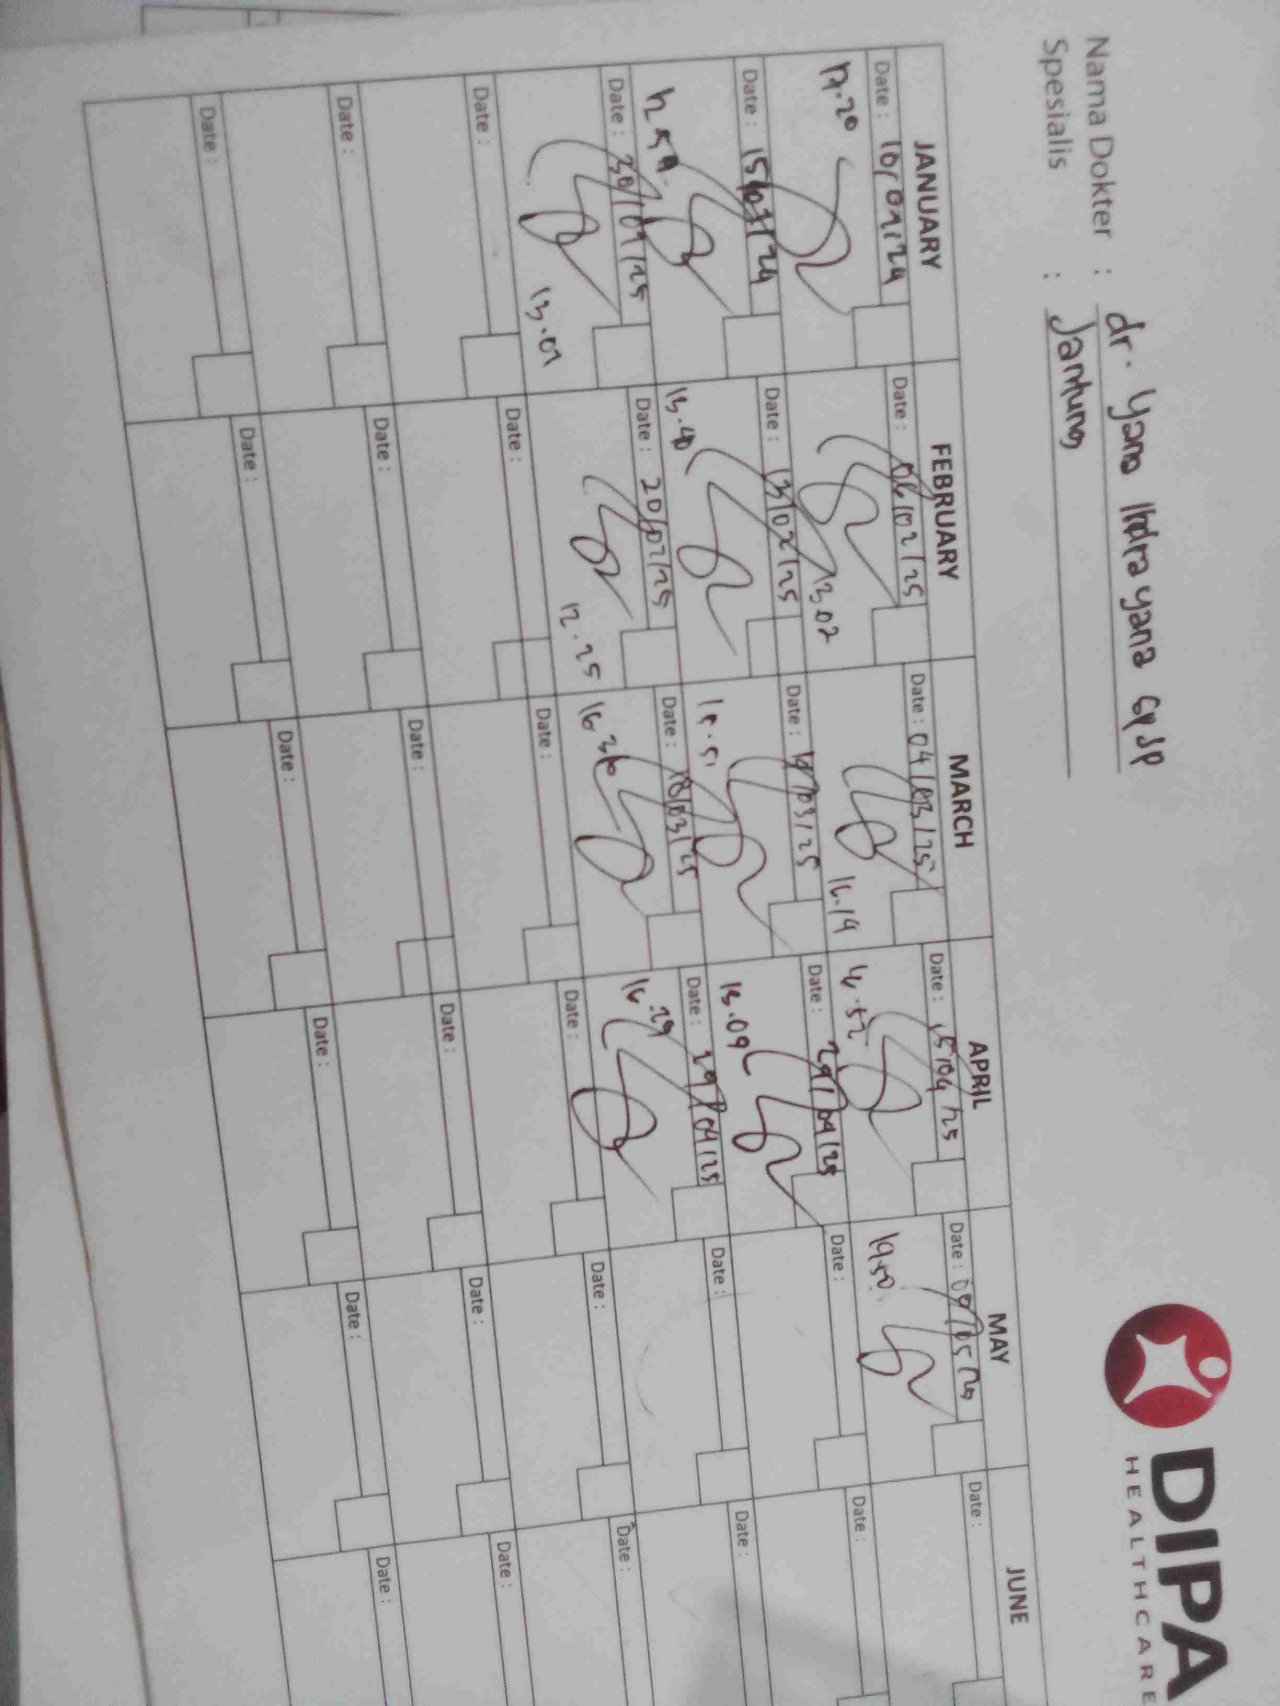 DIPA
HEALTHCARE
Nama Dokter : dr. Yana Indrayana SpJP
Spesialis : Jantung
JANUARY FEBRUARY MARCH APRIL MAY JUNE
Date : 10/01/24 Date : 06/02/25 Date : 04/03/25 Date : 15/04/25 Date : 09/05/25 Date :
17.20 13.02 16.19 16.52 19.50
Date : 15/01/24 Date : 13/02/25 Date : /03/25 Date : 29/04/25 Date : Date :
13.40 15.09
Date : 30/01/25 Date : 20/02/25 Date : 18/03/25 Date : 29/04/25 Date : Date :
13.01 12.25 16.36 16.29
Date : Date : Date : Date : Date : Date :
Date : Date : Date : Date : Date : Date :
Date : Date : Date : Date : Date : Date :